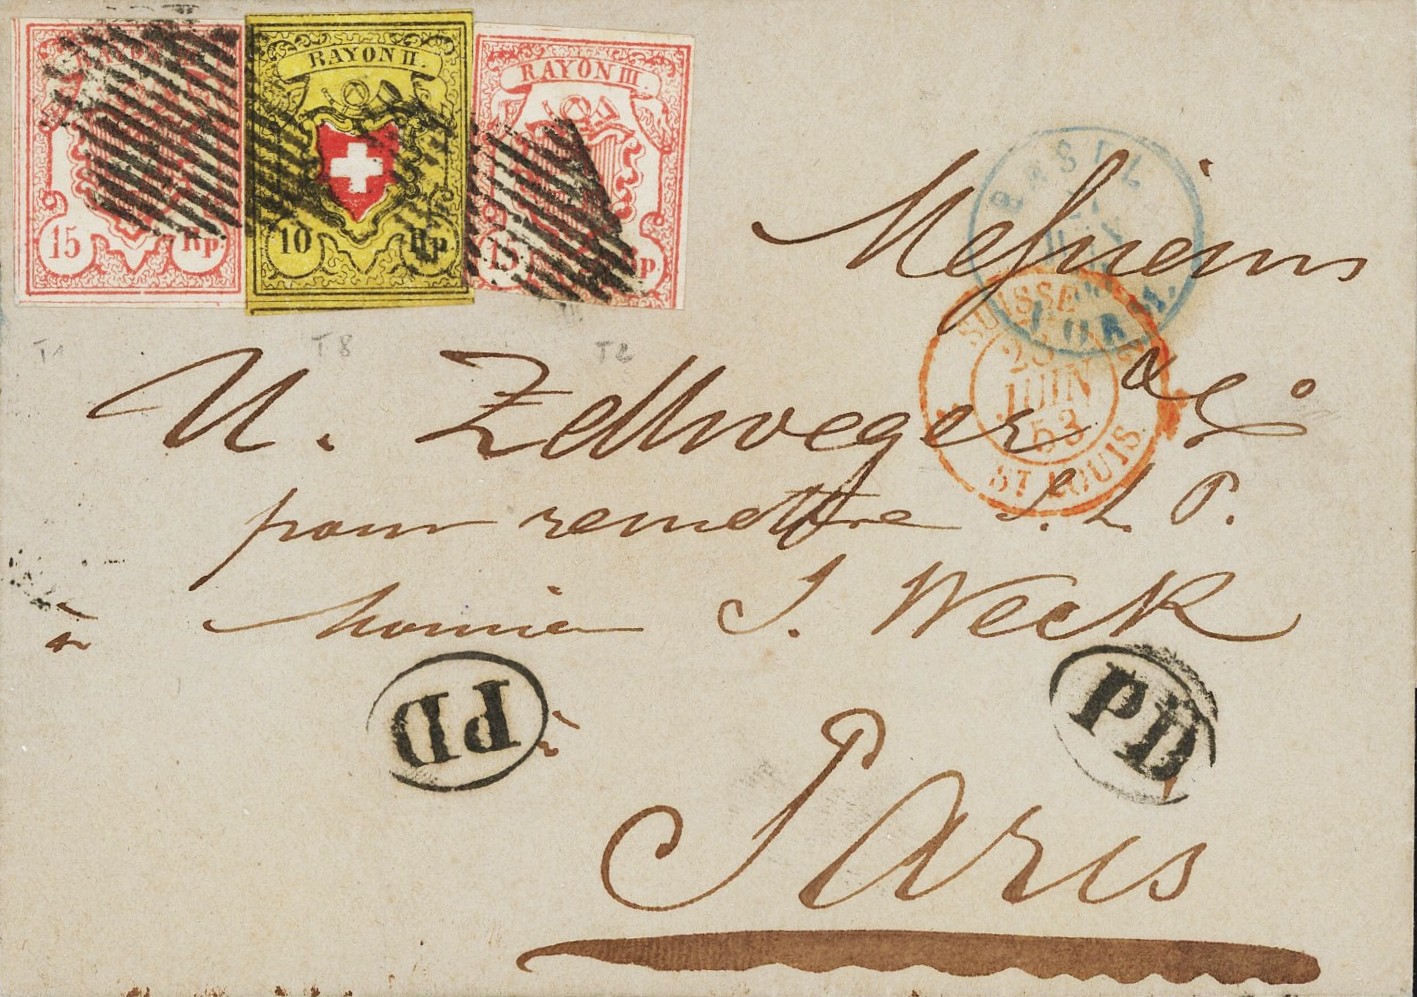 RAYON II.
RAYON III.
15 Rp.
10 Rp
15 Rp.
T1
T8
T2
BASEL
27
SUISSE
28
JUIN
53
ST LOUIS
Messieurs
U. Zellweger & Co
pour remettre S. L. P.
à
J. Weck
PD
PD
à
Paris